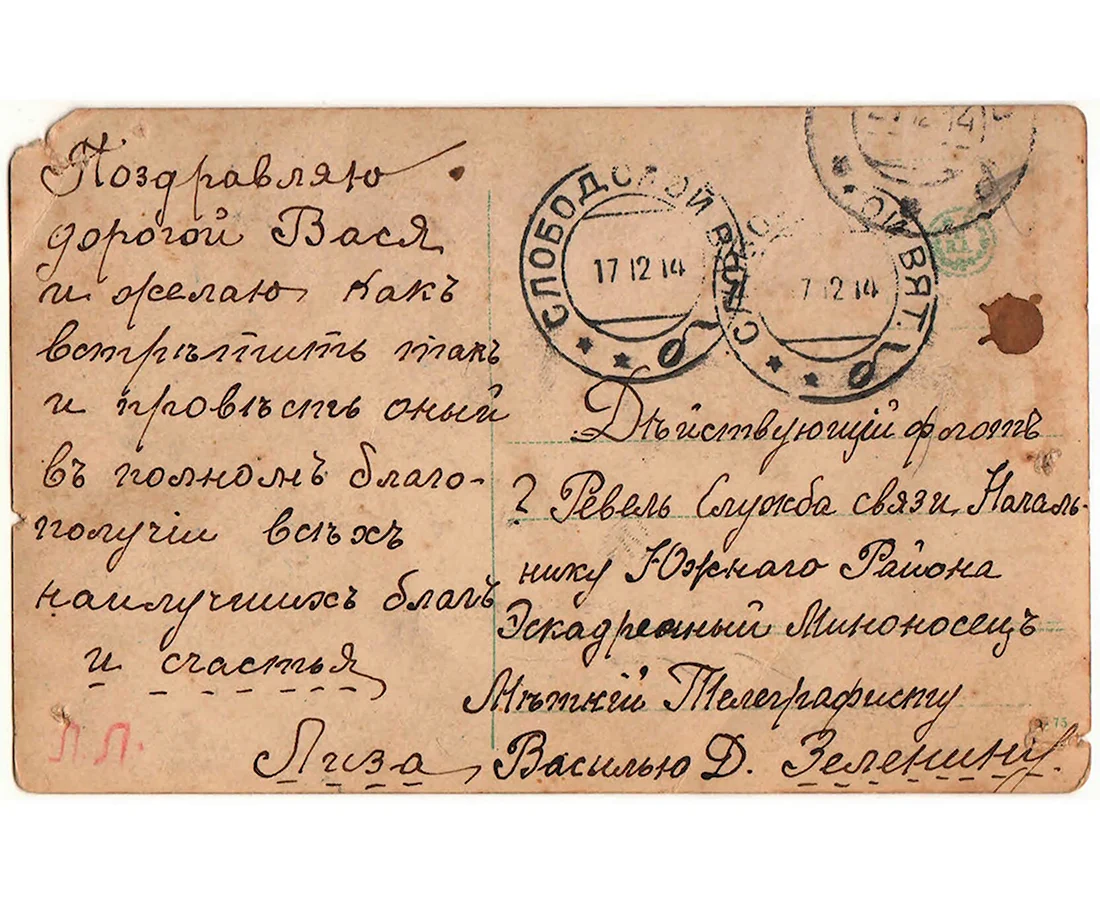 Поздравляю
дорогой Вася
и желаю какъ
встрѣтить такъ
и провѣсть оный
въ полномъ благо-
получіи всѣхъ
наилучшихъ благъ
и счастья
Лиза
Л.Л.
СЛОБОДСКОЙ ВЯТ.
17 12 14
СЛОБОДСКОЙ ВЯТ.
7 12 14
ОЙ ВЯТ.
12 14
Дѣйствующій флотъ
2 Ревель Служба связи Началь-
нику Южнаго Района
Эскадреный Миноносецъ
Мѣткій Телеграфисту
Василью Д. Зеленину.
75